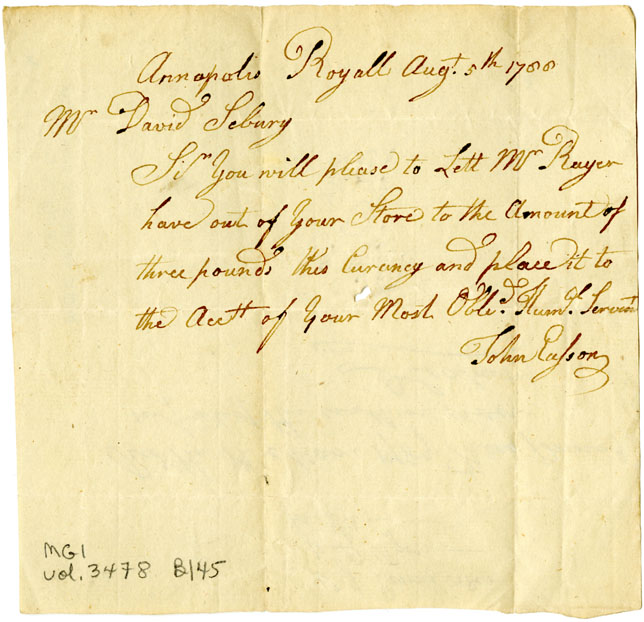 Annapolis Royall Augt. 5th 1788
Mr David Sebury
Sir You will please to Lett Mr Rayer
have out of your Store to the Amount of
three pounds this Curancy and place it to
the Acctt of Your Most Obled. Huml. Servant
John Easson
MG1
vol. 3478 B/45